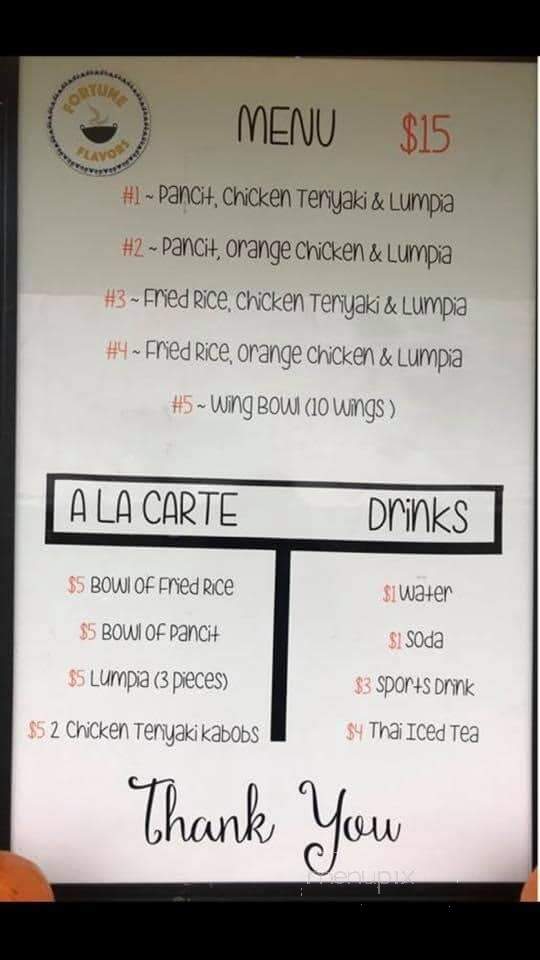 FORTUNE
FLAVORS
MENU $15
#1 ~ Pancit, Chicken Teriyaki & Lumpia
#2 ~ Pancit, Orange Chicken & Lumpia
#3 ~ Fried Rice, Chicken Teriyaki & Lumpia
#4 ~ Fried Rice, Orange Chicken & Lumpia
#5 ~ Wing Bowl (10 Wings )
A LA CARTE
$5 Bowl of Fried Rice
$5 Bowl of Pancit
$5 Lumpia (3 pieces)
$5 2 Chicken Teriyaki Kabobs
Drinks
$1 Water
$1 Soda
$3 Sports Drink
$4 Thai Iced Tea
Thank You
menupix